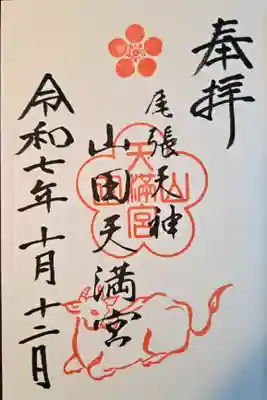 奉拝
尾張天神
山田天満宮
山田天満宮
令和七年十月十二日